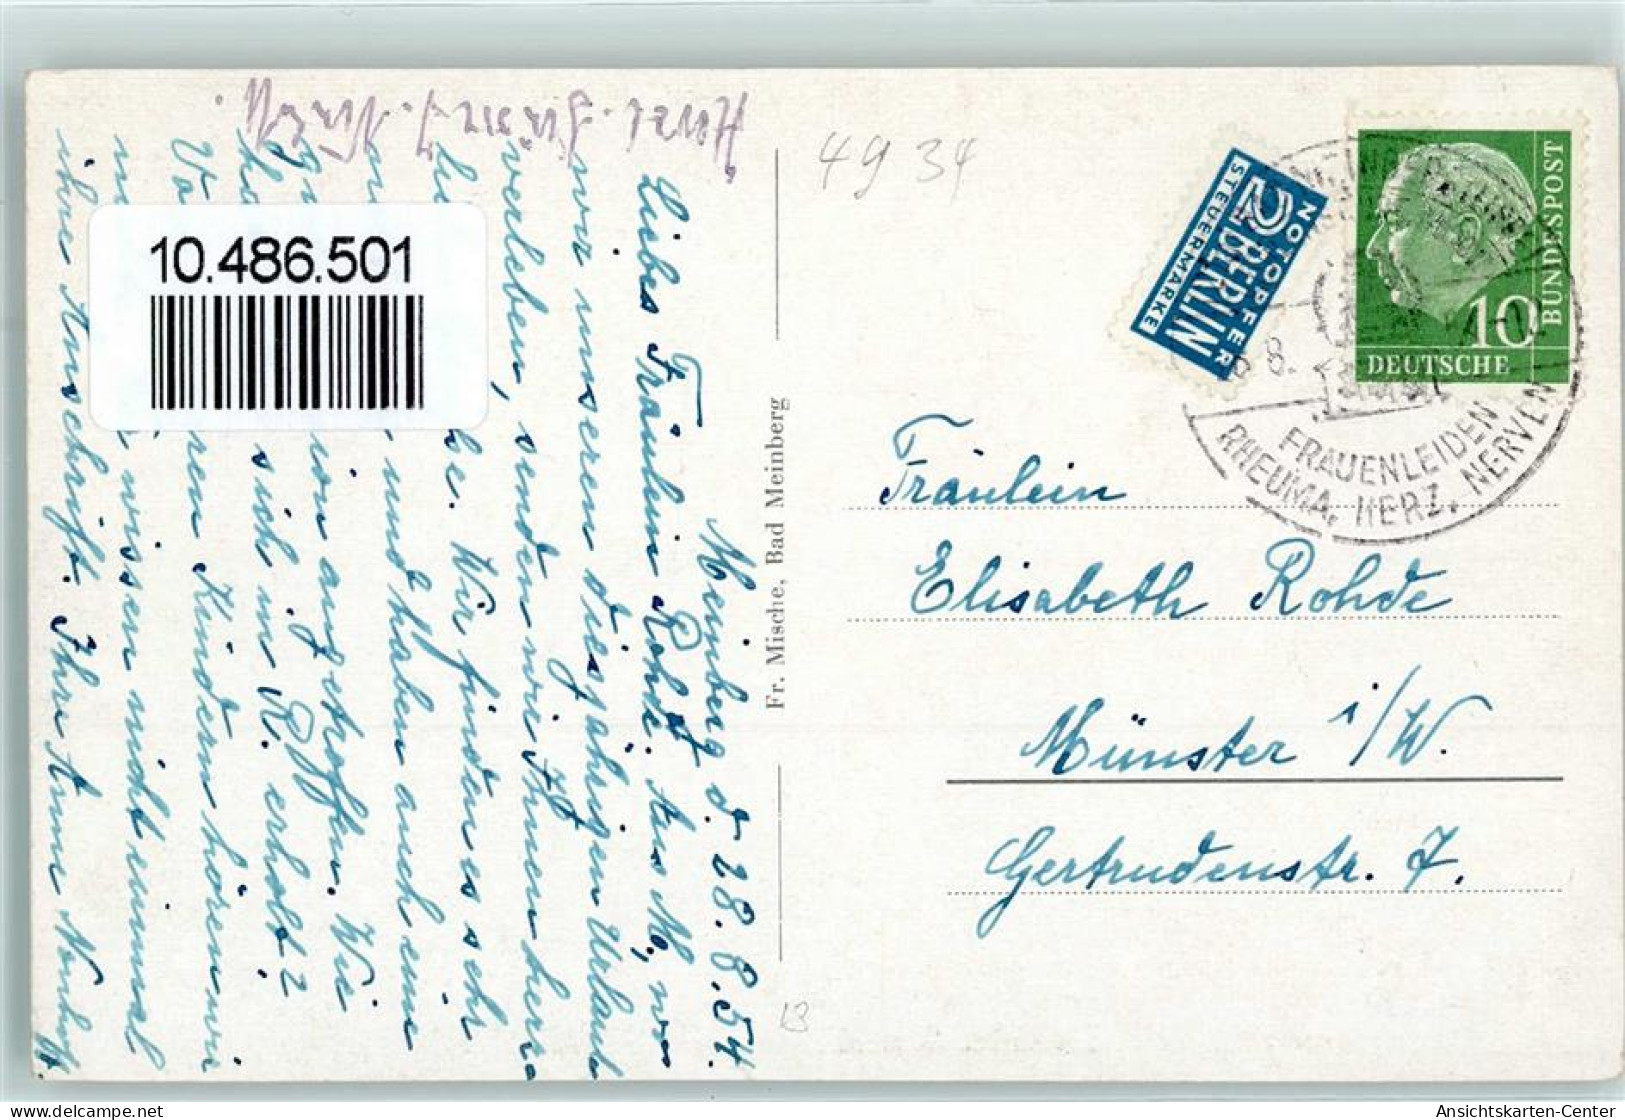 10.486.501
Meinberg d. 28.8.54.
Liebes Fräulein Rohde. Aus M., wo
wir unseren diesjährigen Urlaub
verleben, senden wir Ihnen herz
be. Wir finden es sehr
und haben auch eine
ion angetroffen. Wie
sich in R. erholt?
ren Kindern hören wir
wissen nicht einmal
ihre Anschrift. Ihre Anne
Fr. Mische, Bad Meinberg
49 34
13
NOTOPFER
2 BERLIN
STEUERMARKE
DEUTSCHE
BUNDESPOST
10
8.
FRAUENLEIDEN
RHEUMA. HERZ. NERVEN
Fräulein
Elisabeth Rohde
Münster i/W.
Gertrudenstr. 7.
Ansichtskarten-Center